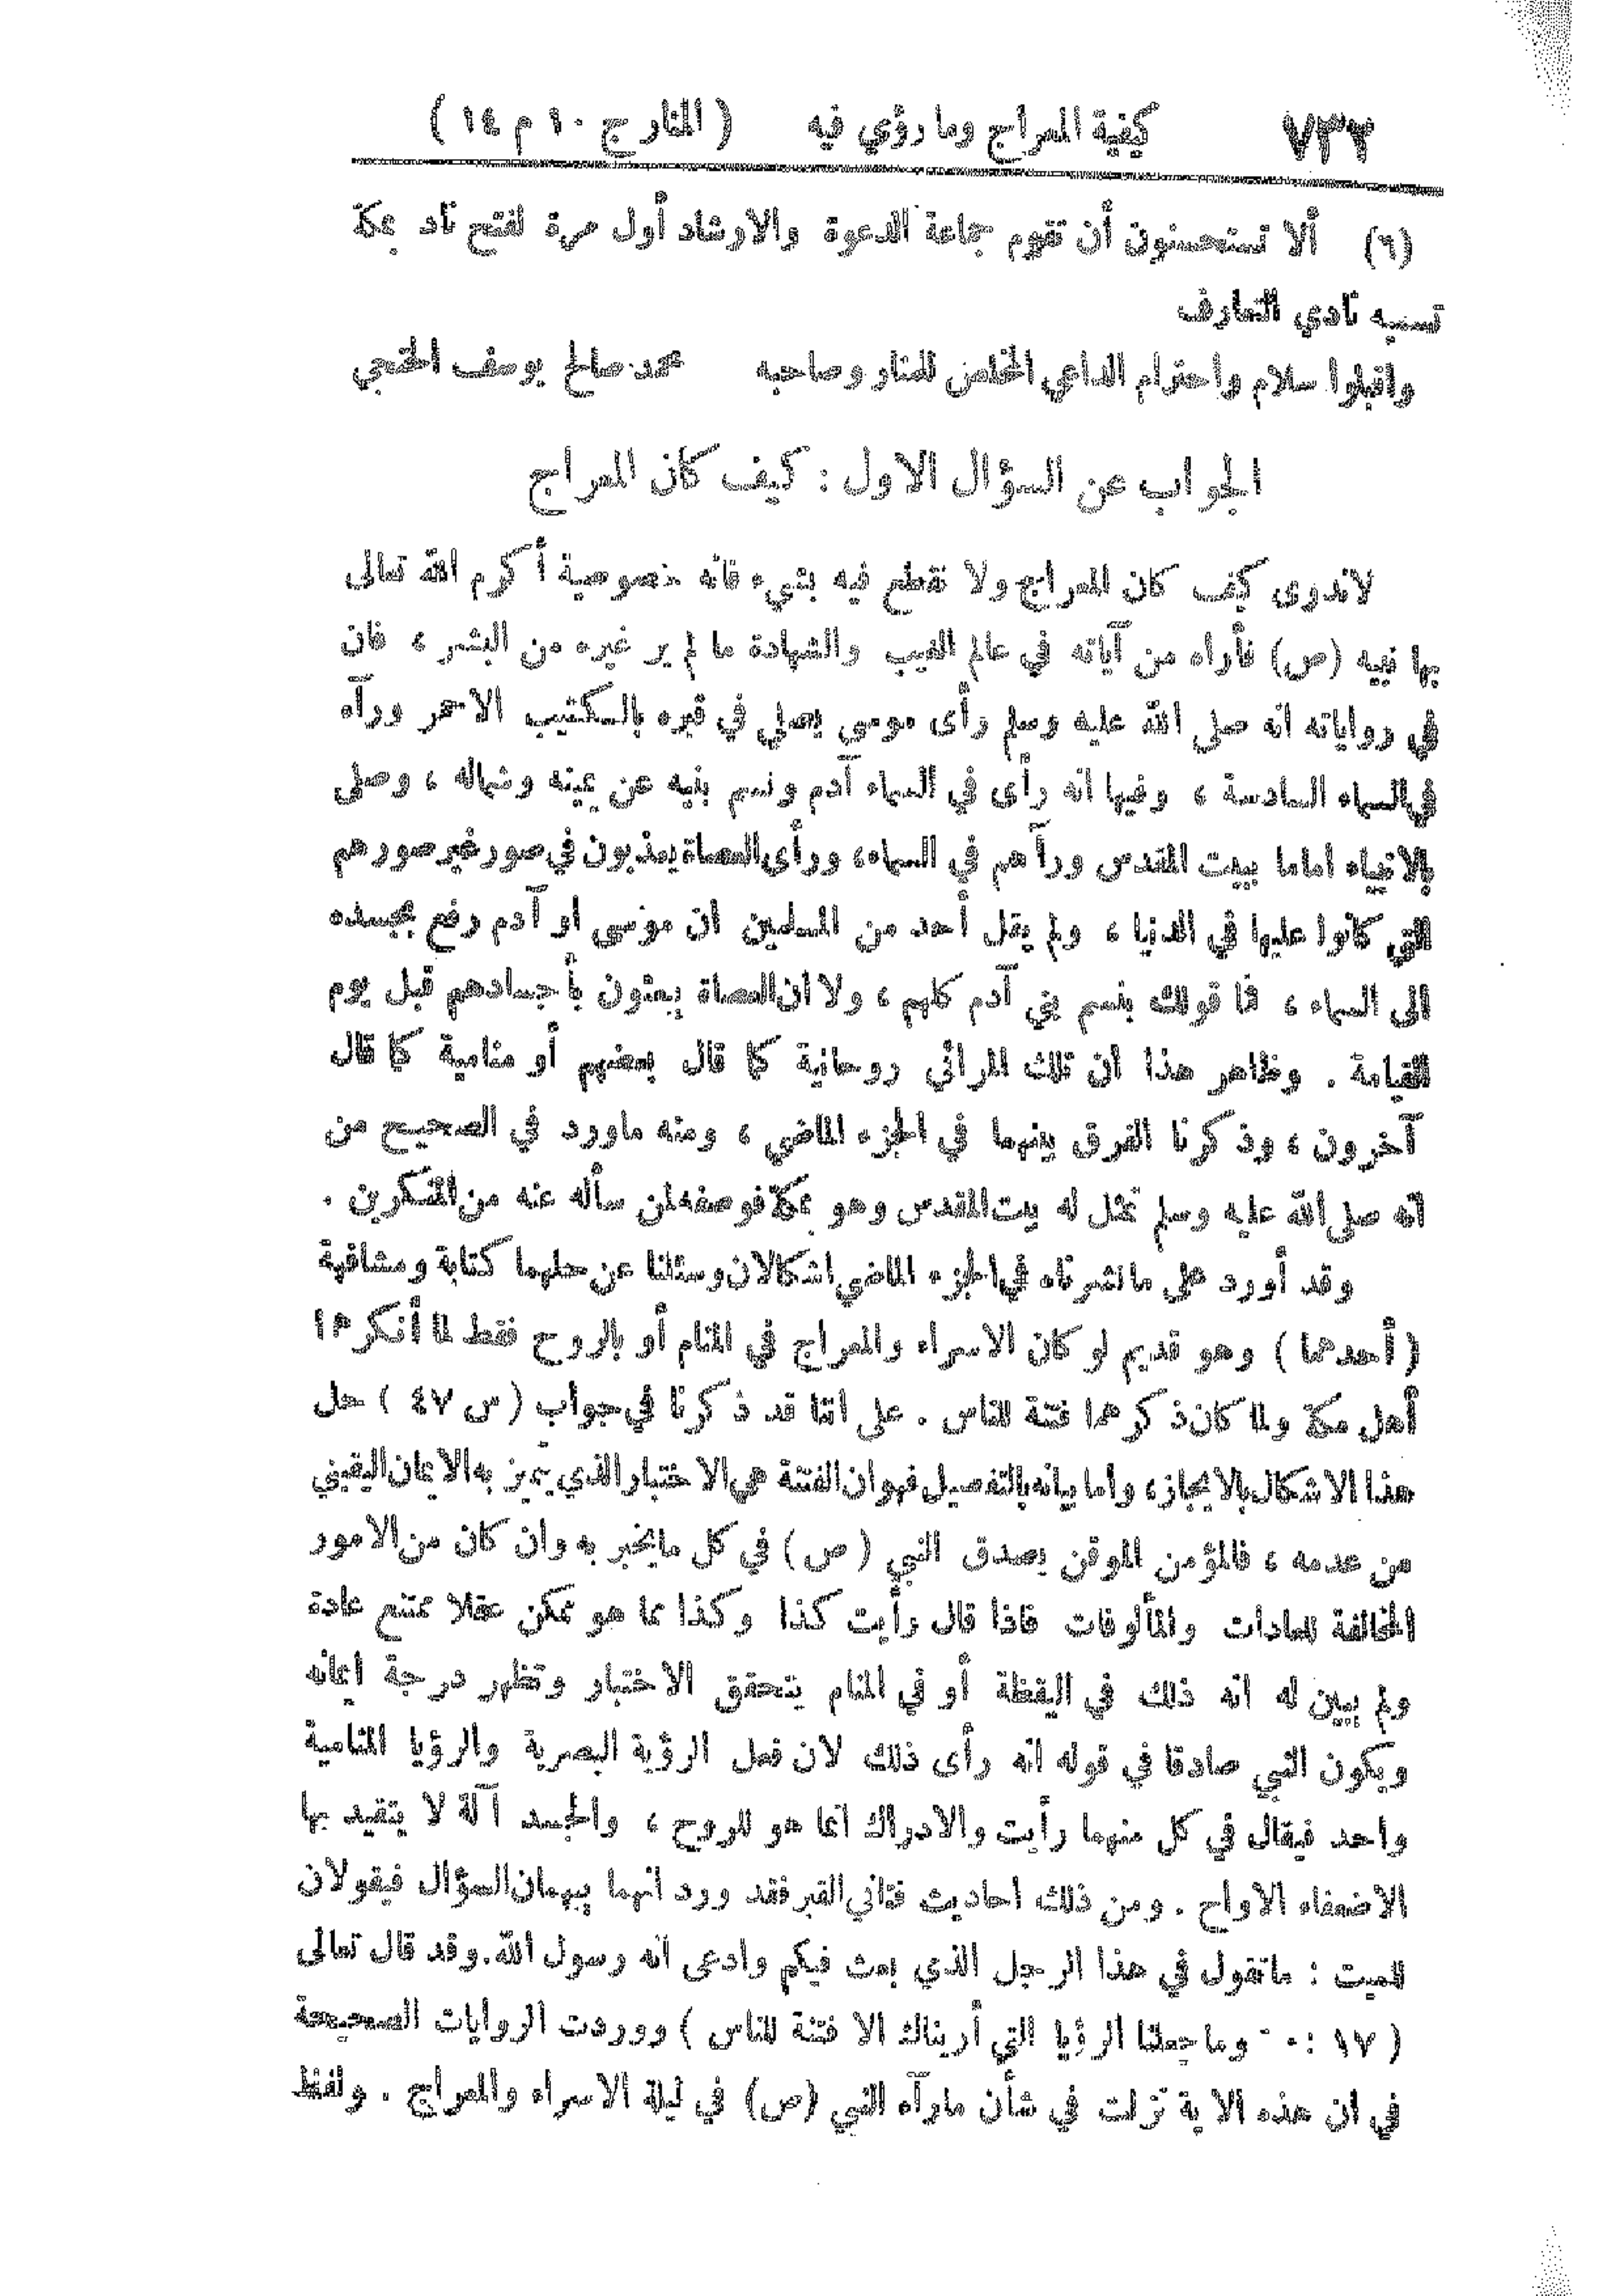 ٧٣٢ كيفية المعراج وما رؤي فيه ( المنار ج ١٠ م ١٤ )
(٦) ألا تستحسنون أن تقوم جماعة الدعوة والارشاد أول مرة لفتح ناد بمكة
تسميه نادي التعارف
واقبلوا سلام واحترام الداعي المخلص للمنار وصاحبه محمد صالح يوسف الخنجي
الجواب عن السؤال الاول : كيف كان المعراج
لاندرى كيف كان المعراج ولا نقطع فيه بشيء فانه خصوصية أكرم الله تعالى
بها نبيه (ص) فأراه من آياته في عالم الغيب والشهادة ما لم ير غيره من البشر ، فان
في رواياته انه صلى الله عليه وسلم رأى موسى يصلي في قبره بالكثيب الاحمر ورآه
في السماء السادسة ، وفيها انه رأى في السماء آدم ونسم بنيه عن يمينه وشماله ، وصلى
بالانبياء اماما ببيت المقدس ورآهم في السماء، ورأى العصاة يعذبون في صور غير صورهم
التي كانوا عليها في الدنيا ، ولم يقل أحد من المسلمين ان موسى او آدم رفع بجسده
الى السماء ، فما قولك بنسم بني آدم كلهم ، ولا ان العصاة يبعثون بأجسادهم قبل يوم
القيامة . وظاهر هذا أن تلك المرائي روحانية كما قال بعضهم أو منامية كما قال
آخرون ، وذكرنا الفرق بينهما في الجزء الماضي ، ومنه ماورد في الصحيح من
انه صلى الله عليه وسلم تمثل له بيت المقدس وهو بمكة فوصفه لمن سأله عنه من المنكرين .
وقد أورد على مانشرناه في الجزء الماضي اشكالان وسئلنا عن حلهما كتابة ومشافهة
( أحدهما ) وهو قديم لو كان الاسراء والمعراج في المنام أو بالروح فقط لما أنكرهما
أهل مكة ولما كان ذكرهما فتنة للناس . على اننا قد ذكرنا في جواب ( س ٤٧ ) حل
هذا الاشكال بالايجاز، وأما بيانه بالتفصيل فهو ان الفتنة هي الاختبار الذي يتميز به الايمان اليقيني
من عدمه ، فالمؤمن الموقن يصدق النبي (ص) في كل مايخبر به وان كان من الامور
المخالفة للعادات والمألوفات فاذا قال رأيت كذا وكذا مما هو ممكن عقلا ممتنع عادة
ولم يبين له انه ذلك في اليقظة أو في المنام يتحقق الاختبار وتظهر درجة ايمانه
ويكون النبي صادقا في قوله انه رأى ذلك لان فعل الرؤية البصرية والرؤيا المنامية
واحد فيقال في كل منهما رأيت والادراك انما هو للروح ، والجسد آلة لا يتقيد بها
الاضعفاء الاواح . ومن ذلك احاديث فتاني القبر فقد ورد انهما يبهمان السؤال فيقولان
للميت : ماتقول في هذا الرجل الذي بعث فيكم وادعى انه رسول الله. وقد قال تعالى
( ١٧ : وما جعلنا الرؤيا التي أريناك الا فتنة للناس ) ووردت الروايات الصحيحة
في ان هذه الاية نزلت في شأن مارآه النبي (ص) في ليلة الاسراء والمعراج . ولفظ